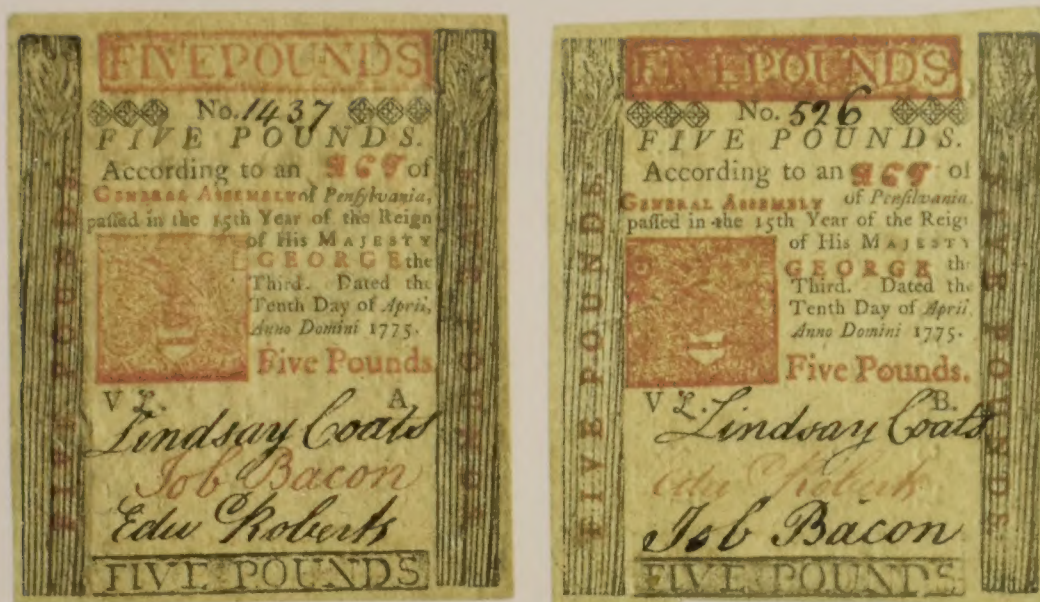 FIVE POUNDS
No. 1437
FIVE POUNDS.
According to an ACT of
GENERAL ASSEMBLY of Penſylvania,
paſſed in the 15th Year of the Reign
of His MAJESTY
GEORGE the
Third. Dated the
Tenth Day of April,
Anno Domini 1775.
Five Pounds
V £. A
Lindsay Coats
Job Bacon
Edw Roberts
FIVE POUNDS
FIVE POUNDS
FIVE POUNDS
FIVE POUNDS
No. 526
FIVE POUNDS.
According to an ACT of
GENERAL ASSEMBLY of Penſilvania,
paſſed in the 15th Year of the Reig
of His MAJESTY
GEORGE the
Third. Dated the
Tenth Day of April,
Anno Domini 1775.
Five Pounds.
V £. B.
Lindsay Coats
Edw Roberts
Job Bacon
FIVE POUNDS
FIVE POUNDS.
FIVE POUNDS